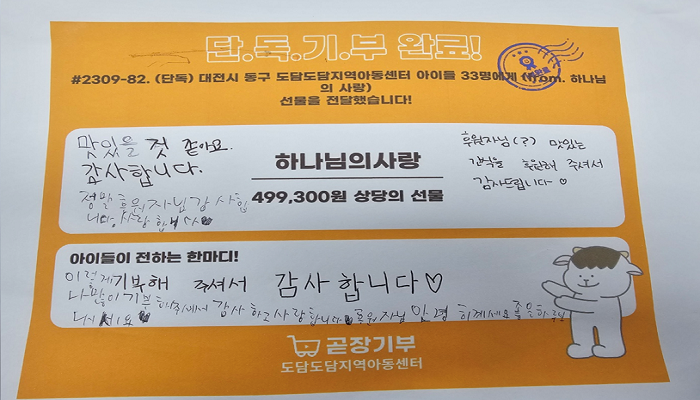 단.독.기.부 완료!
#2309-82. (단독) 대전시 동구 도담도담지역아동센터 아이들 33명에게 (from. 하나님
의 사랑)
선물을 전달했습니다!
맛있을 것 같아요.
감사합니다.
정말 후원자님 감사합
니다. 사랑합니다♥
하나님의사랑
499,300원 상당의 선물
후원자님(?) 맛있는
간식을 후원해 주셔서
감사드립니다♡
아이들이 전하는 한마디!
이렇게 기부해 주셔서 감사합니다♡
나많이 기부해주셔서 감사하고 사랑합니다 후원자님 안녕히계세요 좋은하루
곧장기부
도담도담지역아동센터